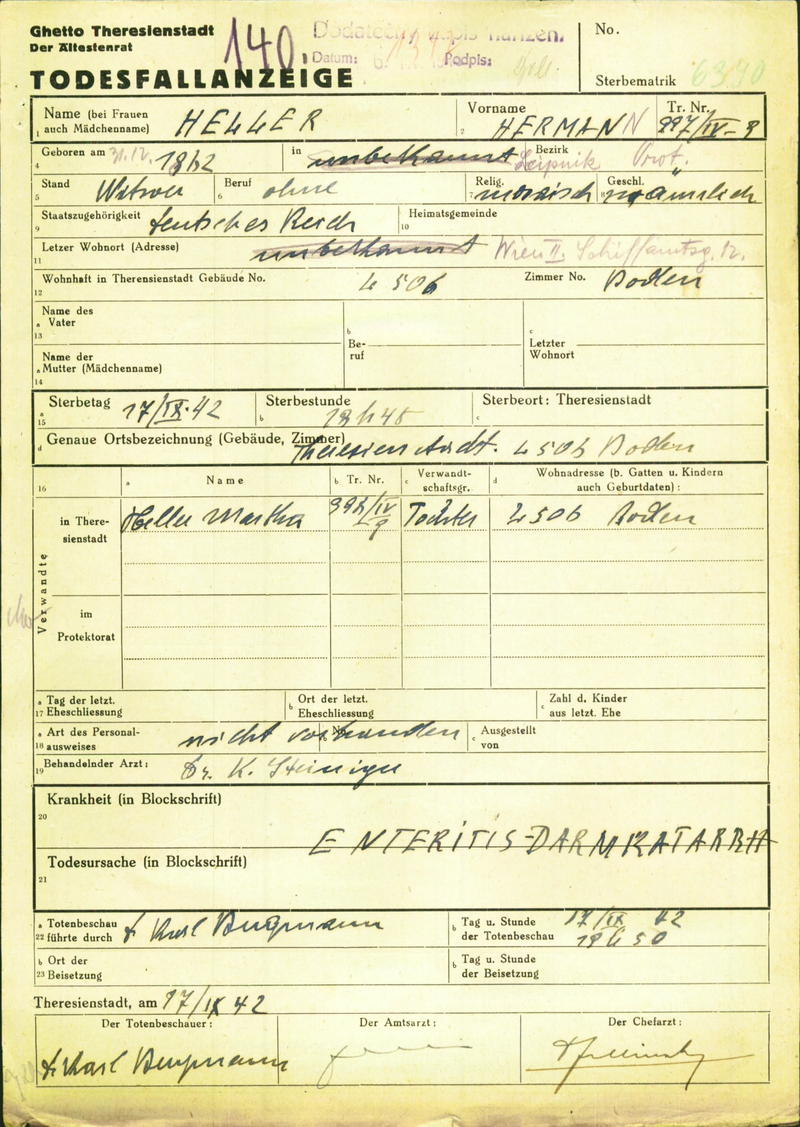 Ghetto Theresienstadt
Der Ältestenrat
TODESFALLANZEIGE
140.
Datum: Podpis:
No.
Sterbematrik
Name (bei Frauen auch Mädchenname) HELLER
1
Vorname HERMANN
2
Tr. Nr. 997/IV-9
3
Geboren am 31.12. 1862 in unbekannt Leipnik Bezirk Prot.
4
Stand Witwer Beruf ohne Relig. mosaisch Geschl. männlich
5 6 7 8
Staatszugehörigkeit Deutsches Reich Heimatsgemeinde
9 10
Letzer Wohnort (Adresse) unbekannt Wien II. Schiffamtsg. 12.
11
Wohnhaft in Therensienstadt Gebäude No. L 506 Zimmer No. Boden
12
Name des Vater
a 13
b Beruf
c Letzter Wohnort
Name der Mutter (Mädchenname)
a 14
Sterbetag 17/IX.42 Sterbestunde 18h45 Sterbeort: Theresienstadt
a 15 b c
d Genaue Ortsbezeichnung (Gebäude, Zimmer) Theresienstadt. L 506 Boden
16 a Name b Tr. Nr. c Verwandtschaftsgr. d Wohnadresse (b. Gatten u. Kindern auch Geburtdaten) :
Verwandte
in Theresienstadt Heller Martha 998/IV-9 Tochter L 506 Boden
im Protektorat
a 17 Tag der letzt. Eheschliessung b Ort der letzt. Eheschliessung c Zahl d. Kinder aus letzt. Ehe
a 18 Art des Personalausweises nicht vorhanden c Ausgestellt von
19 Behandelnder Arzt: Dr. K.
Krankheit (in Blockschrift)
20
ENTERITIS-DARMKATARRH
Todesursache (in Blockschrift)
21
a 22 Totenbeschau führte durch Dr Karl b Tag u. Stunde der Totenbeschau 17/IX 42 18h50
b 23 Ort der Beisetzung b Tag u. Stunde der Beisetzung
Theresienstadt, am 17/IX 42
Der Totenbeschauer: Der Amtsarzt: Der Chefarzt:
Dr Karl